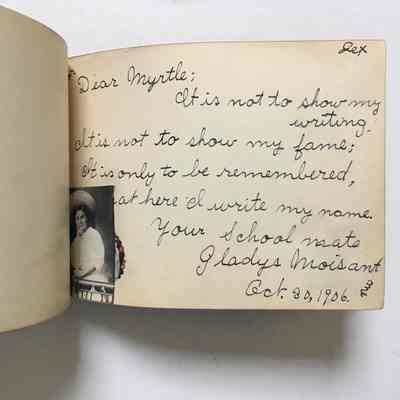 Rex
Dear Myrtle;
It is not to show my
writing.
It is not to show my fame;
It is only to be remembered,
at here I write my name.
Your School mate
Gladys Moisant
Oct. 30, 1906.